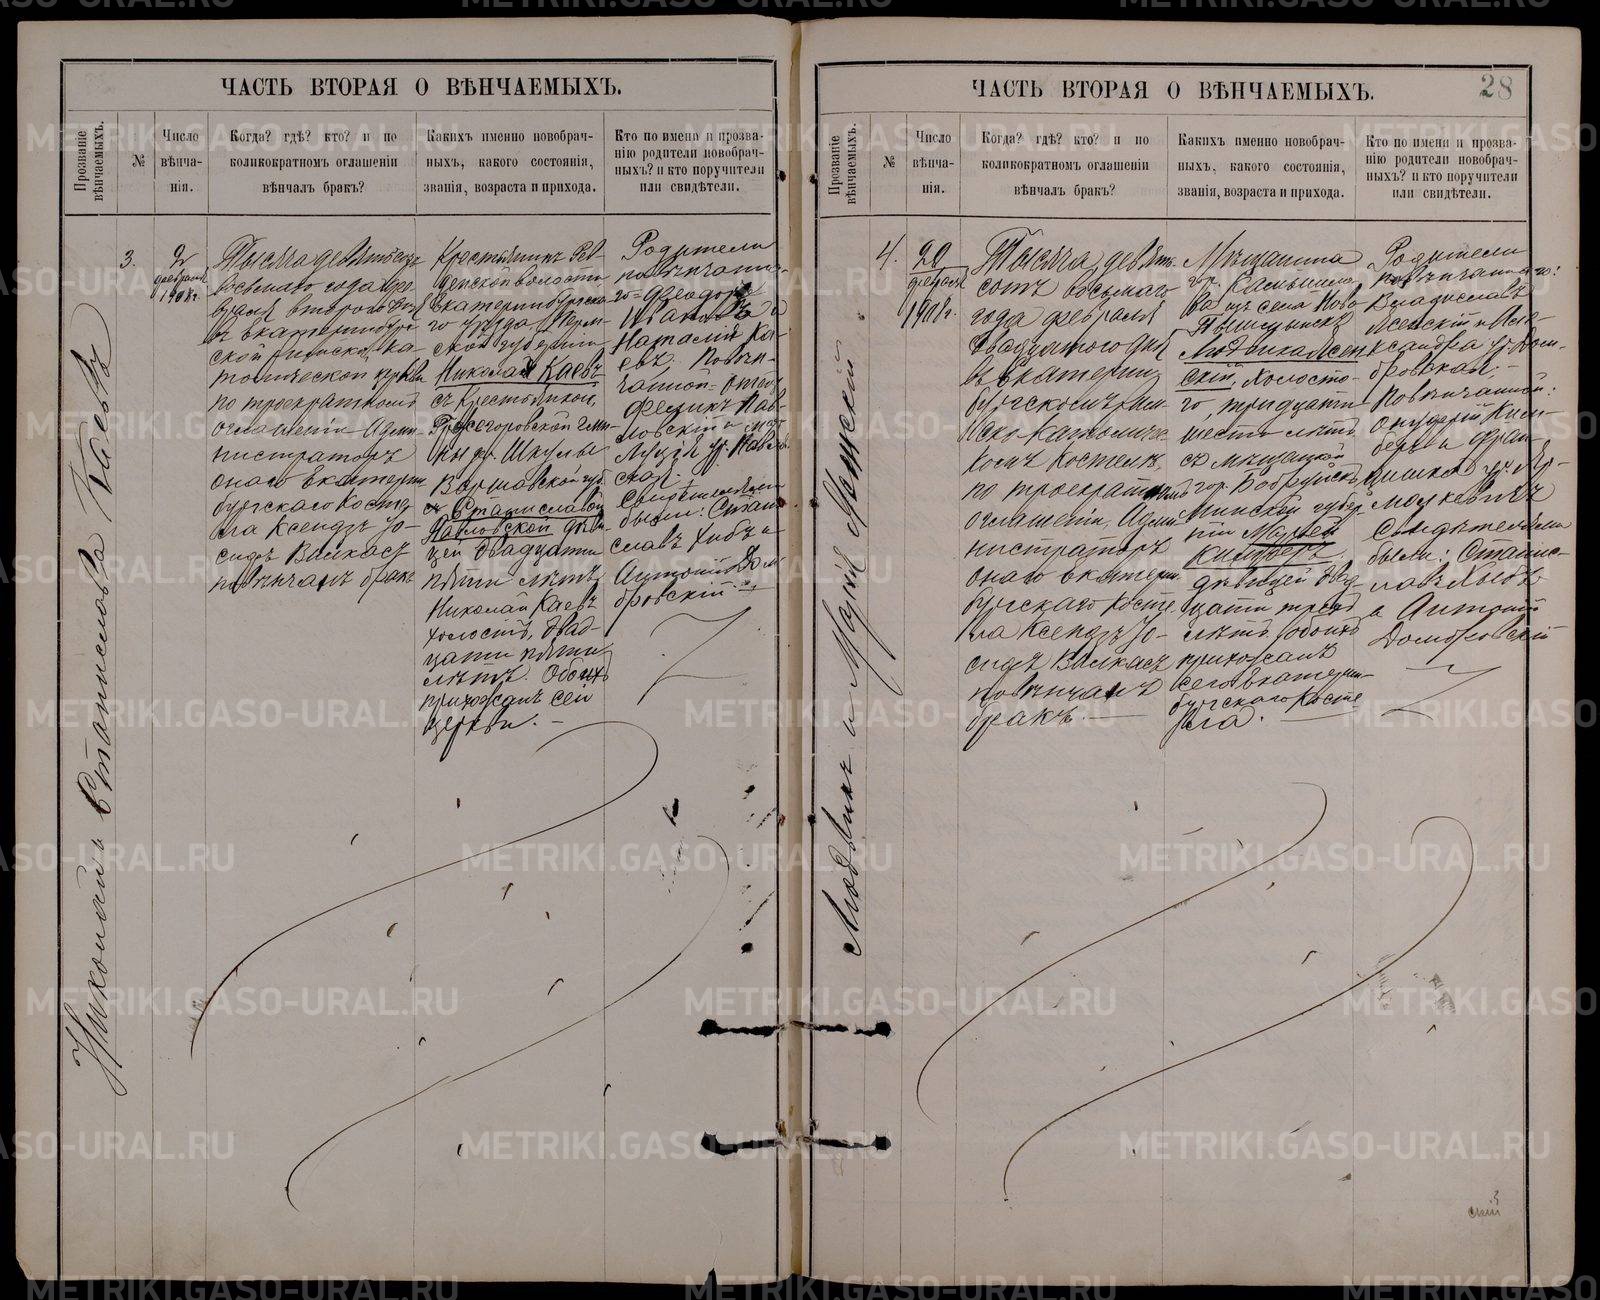 ЧАСТЬ ВТОРАЯ О ВѢНЧАЕМЫХЪ.
Прозваніе вѣнчаемыхъ.
№
Число вѣнча-
нія.
Когда? гдѣ? кто? и по
коликократномъ оглашеніи
вѣнчалъ бракъ?
Какихъ именно новобрач-
ныхъ, какого состоянія,
званія, возраста и прихода.
Кто по имени и прозва-
нію родители новобрач-
ныхъ? и кто поручители
или свидѣтели.
Николай и Станислава Каевъ
3.
2
февраля
1908 г.
Тысяча девятьсотъ
восьмаго года фе-
враля второго дня
въ Екатеринбург-
ской Римско-Ка-
толической церкви
по троекратномъ
оглашеніи Адми-
нистраторъ
онаго Екатерин-
бургскаго Косте-
ла Ксендзъ Іо-
сифъ Вилкасъ
повѣнчалъ бракъ
Крестьянинъ Рев-
динской волости
Екатеринбургска-
го уѣзда Перм-
ской губерніи
Николай Каевъ
съ крестьянкой,
гмины
Варшавской губ.
Станиславой
Павловской дѣви-
цей двадцати
пяти лѣтъ
Николай Каевъ
холостъ, двад-
цати пяти
лѣтъ. Обоихъ
прихожанъ сей
церкви. —
Родители
повѣнчанна-
го = Феодоръ
Ивановъ и
Наталія Ка-
евъ. Повѣн-
чанной =
Феликсъ Пав-
ловскій и
Луція ур. Павлов-
ская.
Свидѣтелями
были: Стани-
славъ Хибъ и
Антоній Дом-
бровскій =
ЧАСТЬ ВТОРАЯ О ВѢНЧАЕМЫХЪ.
28
Прозваніе вѣнчаемыхъ.
№
Число вѣнча-
нія.
Когда? гдѣ? кто? и по
коликократномъ оглашеніи
вѣнчалъ бракъ?
Какихъ именно новобрач-
ныхъ, какого состоянія,
званія, возраста и прихода.
Кто по имени и прозва-
нію родители новобрач-
ныхъ? и кто поручители
или свидѣтели.
Людвикъ и Марія
4.
20
февраля
1908 г.
Тысяча девять-
сотъ восьмаго
года февраля
двадцатого дня
въ Екатерин-
бургскомъ Рим-
ско-Католиче-
комъ Костелѣ,
по троекратномъ
оглашеніи, Адми-
нистраторъ
онаго Екатерин-
бургскаго Косте-
ла Ксендзъ Іо-
сифъ Вилкасъ
повѣнчалъ
бракъ. —
Мѣщанина
гор. Камышло-
ва изъ села Ново
Пышминскъ
Людвика
скій, холосто-
го, тридцати
шести лѣтъ
съ мѣщанкой
гор. Бобруйскъ
Минской губер-
ніи Маріей
дѣвицей двад-
цати трехъ
лѣтъ. обоихъ
прихожанъ
сего Екатерин-
бургскаго Косте-
ла. —
Родители
повѣнчаннаго:
Владиславъ
и Але-
ксандра ур. Дом-
бровская, —
Повѣнчанной:
Онуфрій
и Фран-
цишка ур.
Свидѣтелями
были: Станис-
лавъ Хибъ
и Антоній
Домбровскій
METRIKI.GASO-URAL.RU